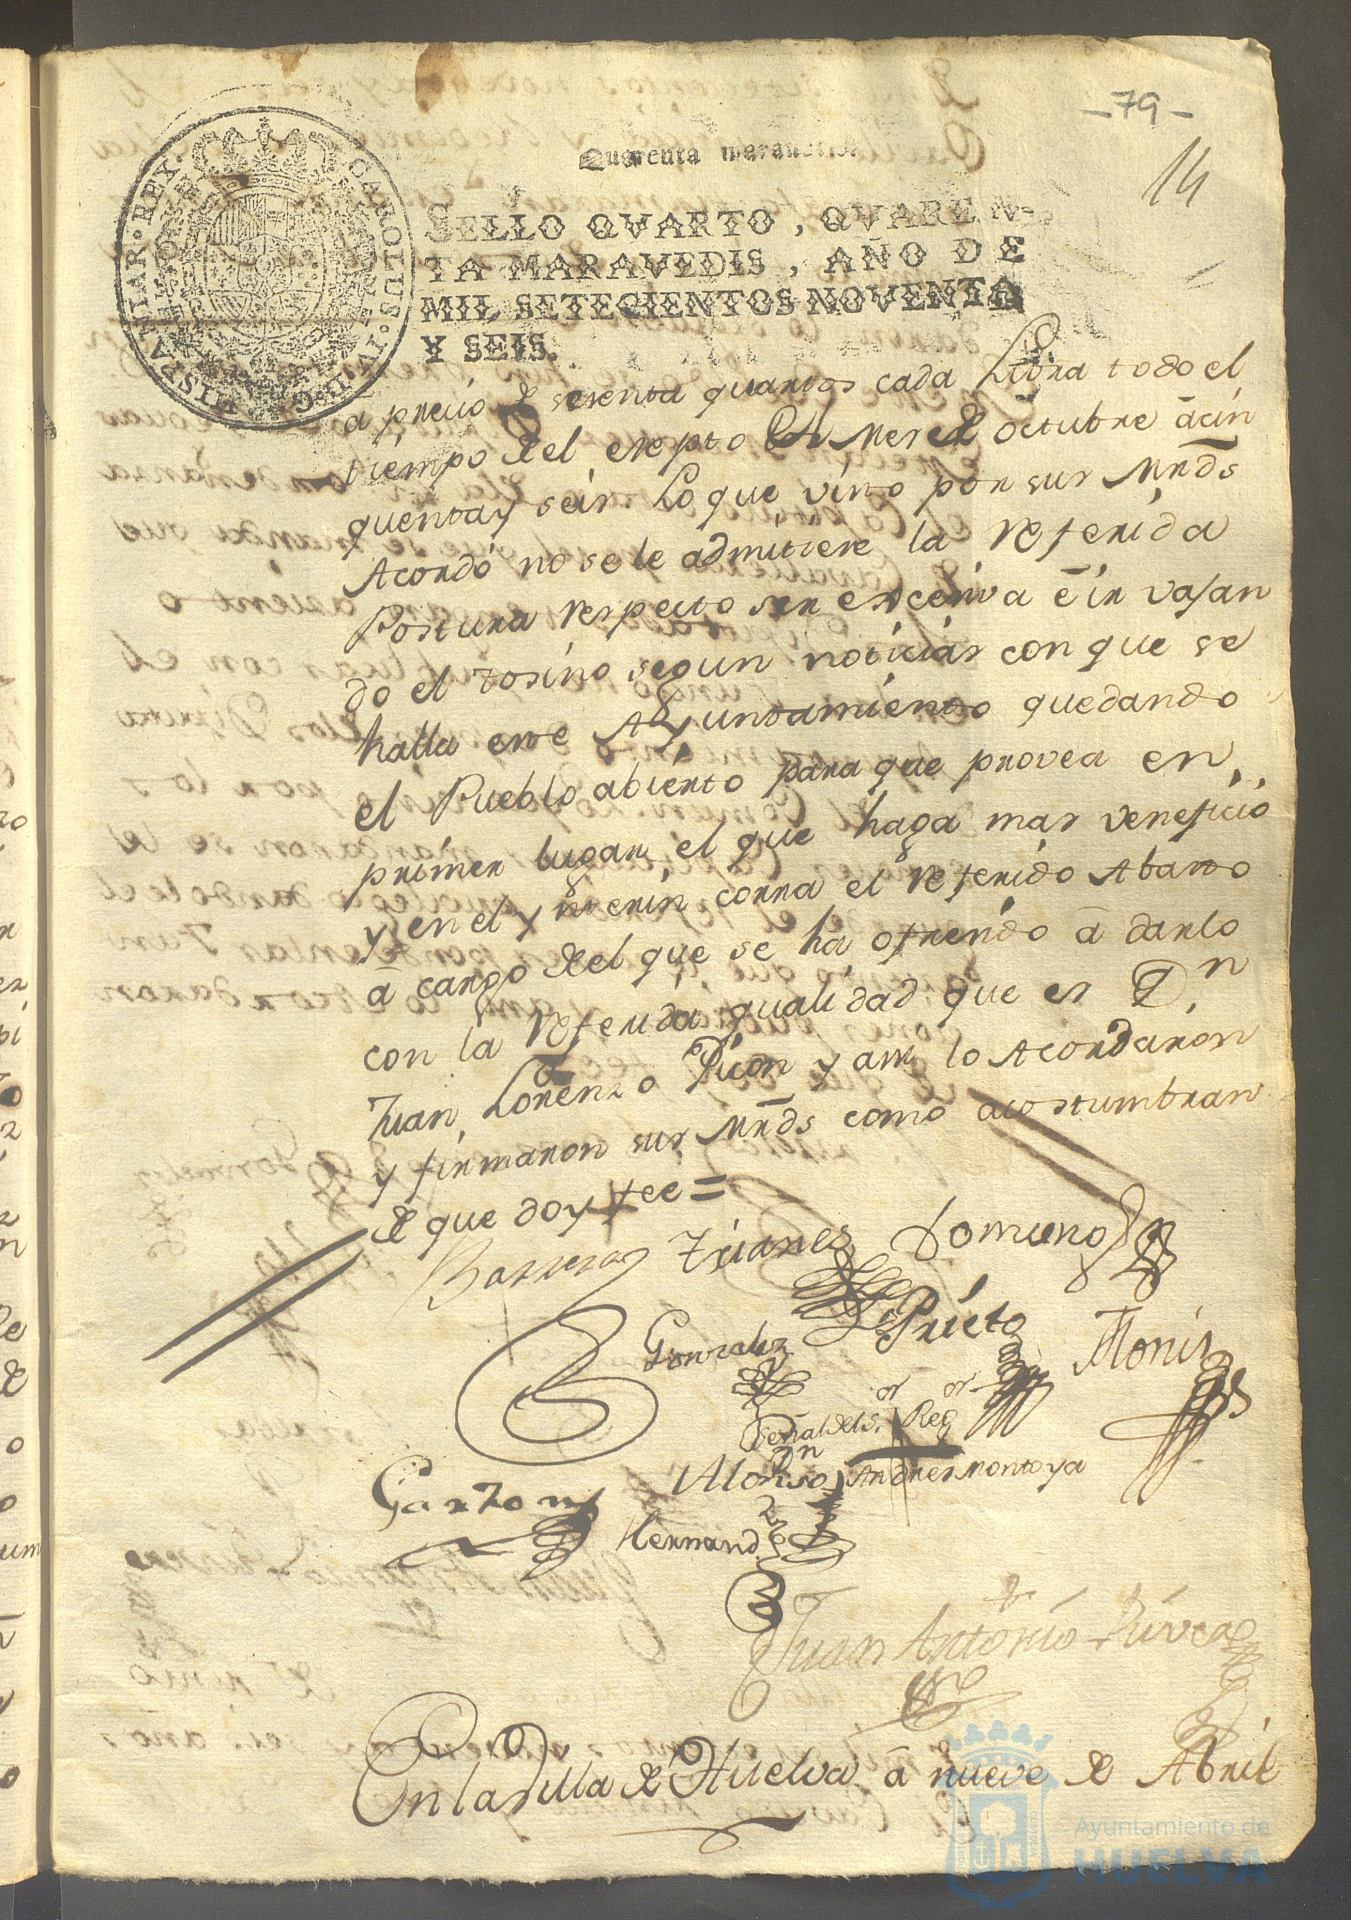 -79-
14
Quarenta maravedis.
CAROLUS IV D G HISPANIAR REX
SELLO QVARTO, QVAREN-
TA MARAVEDIS, AÑO DE
MIL SETECIENTOS NOVENTA
Y SEIS.
a precio de sesenta quartos cada Libra todo el
tiempo del exepto El Mes de octubre ã cin
quenta y seis Lo que visto por sus Mrds
Acordó no se le admitiese la referida
Postura respecto ser excesiva é ir vajan
do el tosino segun noticias con que se
halla este Ayuntamiento quedando
el Pueblo abierto para que provea en
primer lugar, el que haga mas veneficio
y en el ynterin corra el referido Abasto
ã cargo del que se ha ofrendo ã darlo
con la referida qualidad que es Dn
Juan Lorenzo Picon y assi lo Acordaron
y firmaron sus Mrds como acostumbran
de que doy fee =
Barreras Trianes Romero
Gonzalez Prieto Monis
Señal del sor Regor
Garzon Dn Alonso Andres Montoya
Hernandz
Juan Antonio Rivera
En la Villa de Huelva ã nueve de Abril
Ayuntamiento de
HUELVA